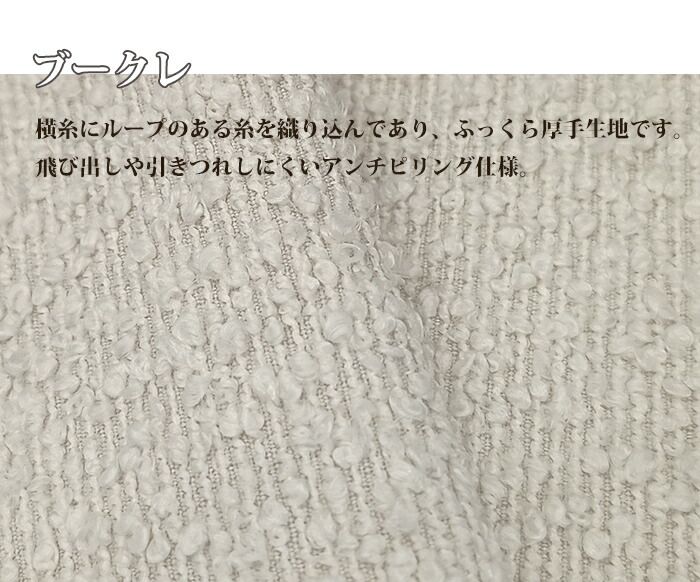 ブークレ
横糸にループのある糸を織り込んであり、ふっくら厚手生地です。
飛び出しや引きつれしにくいアンチピリング仕様。